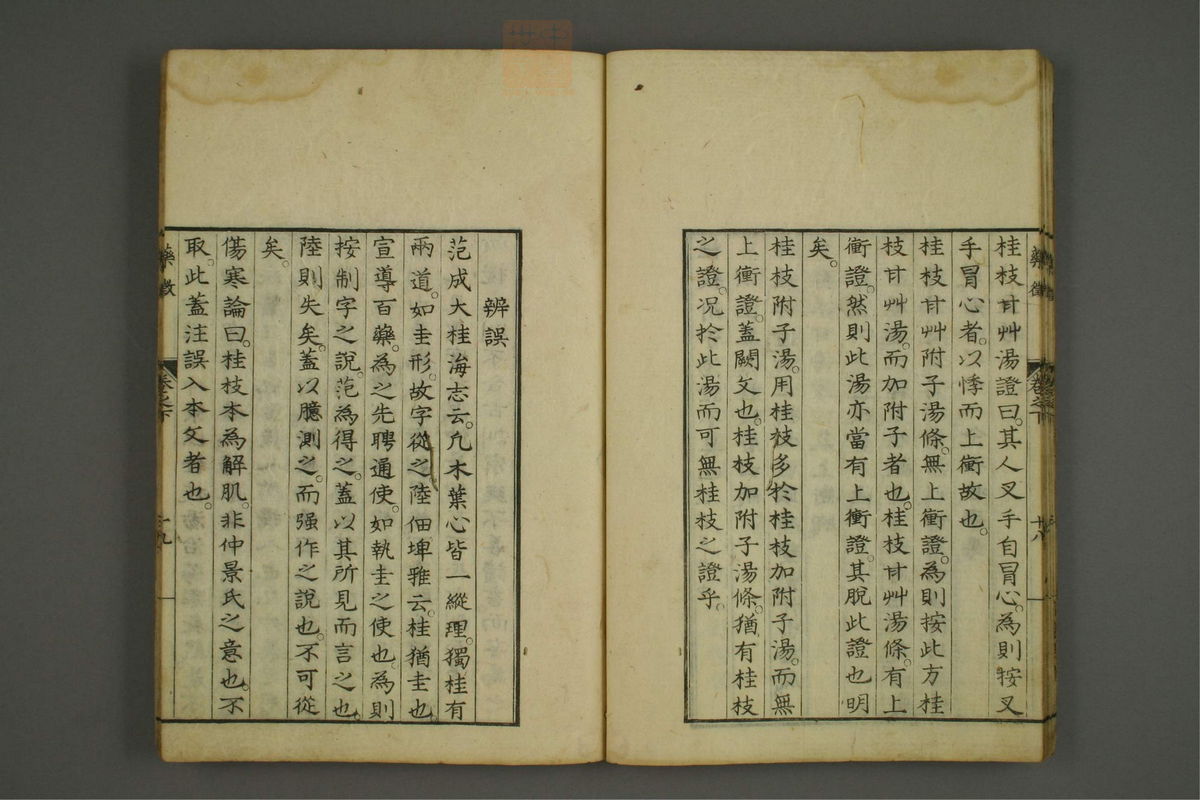 桂枝甘艸湯證曰。其人叉手自冒心。為則按叉
手冒心者。以悸而上衝故也。
桂枝甘艸附子湯條。無上衝證。為則按此方桂
枝甘艸湯。而加附子者也。桂枝甘艸湯條。有上
衝證。然則此湯亦當有上衝證。其脫此證也明
矣。
桂枝附子湯。用桂枝多於桂枝加附子湯。而無
上衝證。蓋闕文也。桂枝加附子湯條。猶有桂枝
之證。况於此湯而可無桂枝之證乎。
藥徵
卷之下
十八
辨誤
范成大桂海志云。凢木葉心皆一縱理。獨桂有
兩道。如圭形。故字從之陸佃埤雅云。桂猶圭也。
宣導百藥。為之先聘通使。如執圭之使也。為則
按制字之說。范為得之。蓋以其所見而言之也。
陸則失矣。蓋以臆測之。而强作之說也。不可從
矣。
傷寒論曰。桂枝本為解肌。非仲景氏之意也。不
取。此蓋注誤入本文者也。
藥徵
卷之下
十九